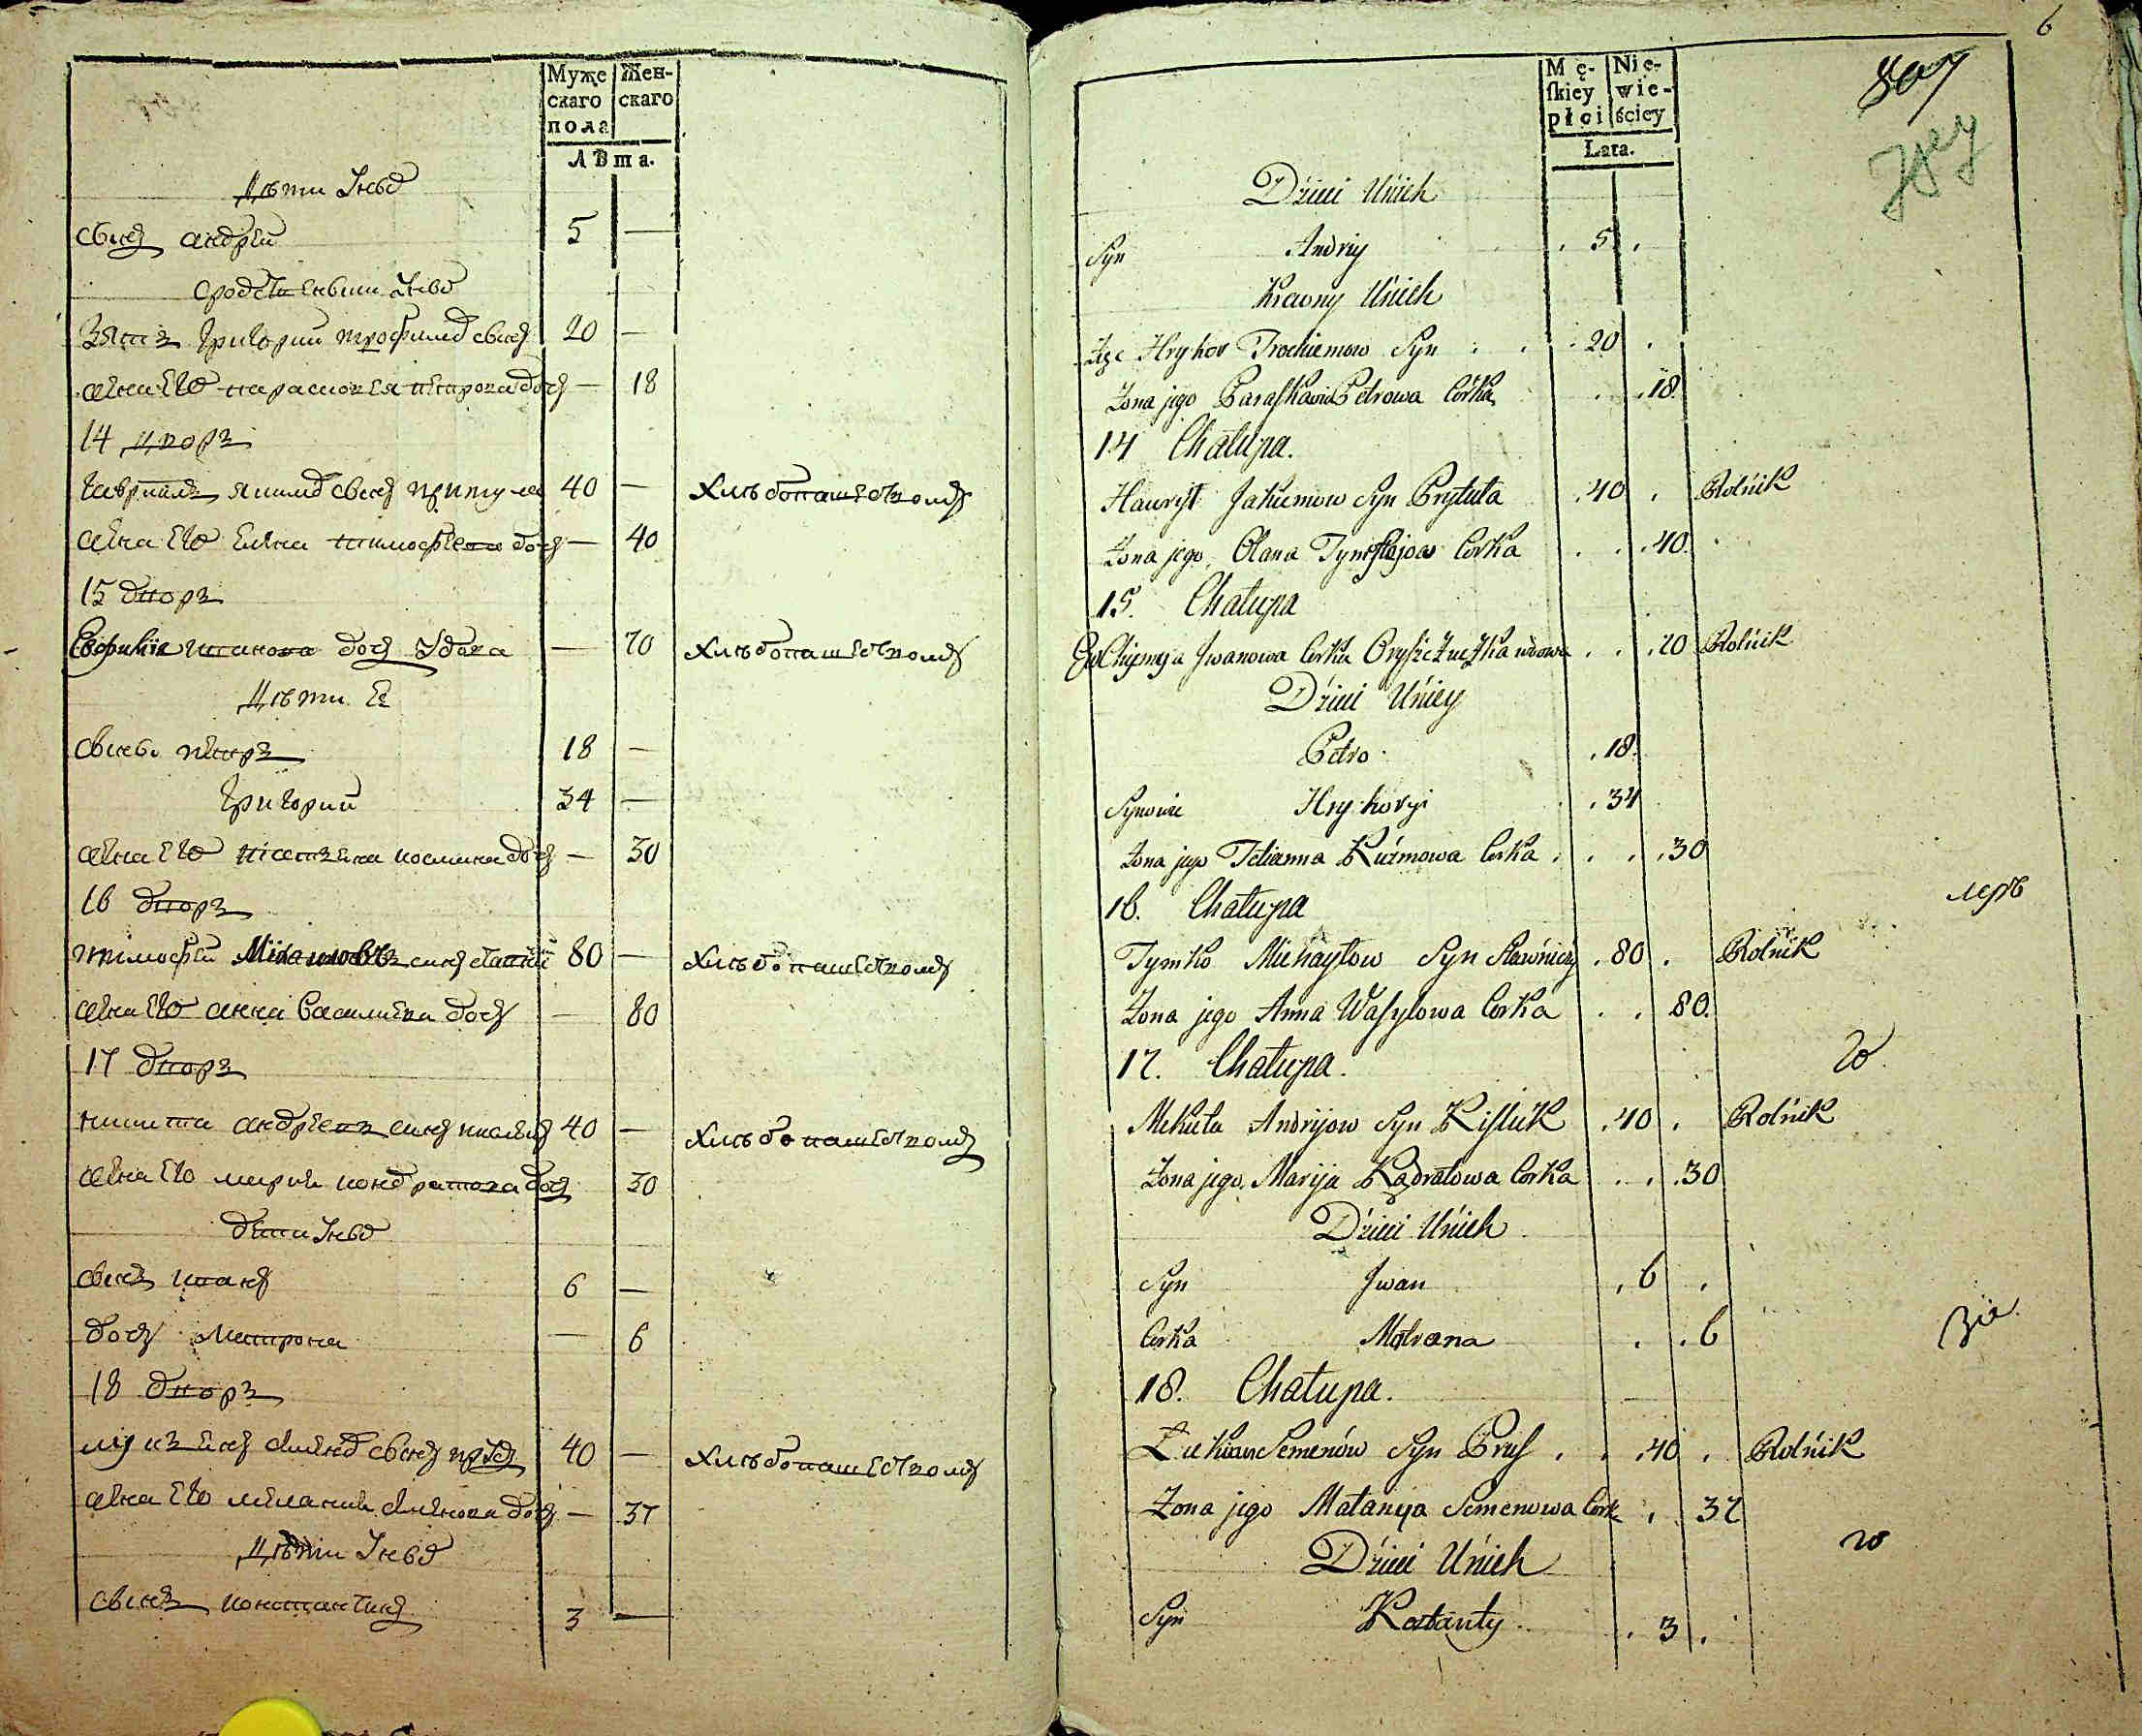 Муже Жен-
скаго скаго
пола
Лѣта.
Дѣти Ихъ
сынъ андрей 5 —
сродственники Ихъ
Зять григорий трофимов сынъ 20 —
жена его парасковея петрова дочь — 18
14 дворъ
гаврилъ якимов сынъ притула 40 — Хлебопашествомъ
жена его Елена тимофеева дочь — 40
15 дворъ
Евфимия иванова дочь Удова — 70 Хлебопашествомъ
Дѣти Ее
сыновъ петръ 18 —
григорий 34 —
жена его козмина дочь — 30
16 дворъ
тимофей Михайловъ сынъ 80 — Хлебопашествомъ
жена его анна василиева дочь — 80
17 дворъ
никита андреевъ сынъ 40 — Хлебопашествомъ
жена его мария кондратова дочь 30
дети Ихъ
сынъ иванъ 6 —
дочь матрона — 6
18 дворъ
семенов сынъ прусъ 40 — Хлебопашествомъ
жена его мелания семенова дочь — 37
Дѣти Ихъ
сынъ константинъ 3 —
6
Mę- Nie-
ſkiey wie-
płci ściey
Lata.
Dzieci Unich
Syn Andriy . 5 .
Krewny Unich
Hryhor Trochimow Syn . . . 20 .
Zona jego Paraſkawia Petrowa Corka . . 18.
14 Chałupa.
Hawrył Jakimow Syn Prytuła . 40 . Rolnik
Zona jego Olana Tymoſiejow Corka . . 40.
15. Chałupa
Iwanowa Corka wdowa . . . 70 Rolnik
Dzieci Uniey
Petro . 18.
Synowie Hryhoryi . 34
Zona jego Tetianna Kuźmowa Corka . . . 30
16. Chałupa
Tymko Michayłow Syn . 80 . Rolnik
Zona jego Anna Waſylowa Corka . . 80.
17. Chałupa.
Mikita Andrijow Syn Kiſluk . 40 . Rolnik
Zona jego Marija Kądratowa Corka . . . 30
Dzieci Unich
Syn Jwan . 6 .
Corka Motrona . . 6
18. Chałupa.
Łukian Semenów Syn Pruſ . . 40 . Rolnik
Zona jego Małanija Semenowa Cork . 37
Dzieci Unich
Syn Kostanty . 3 .